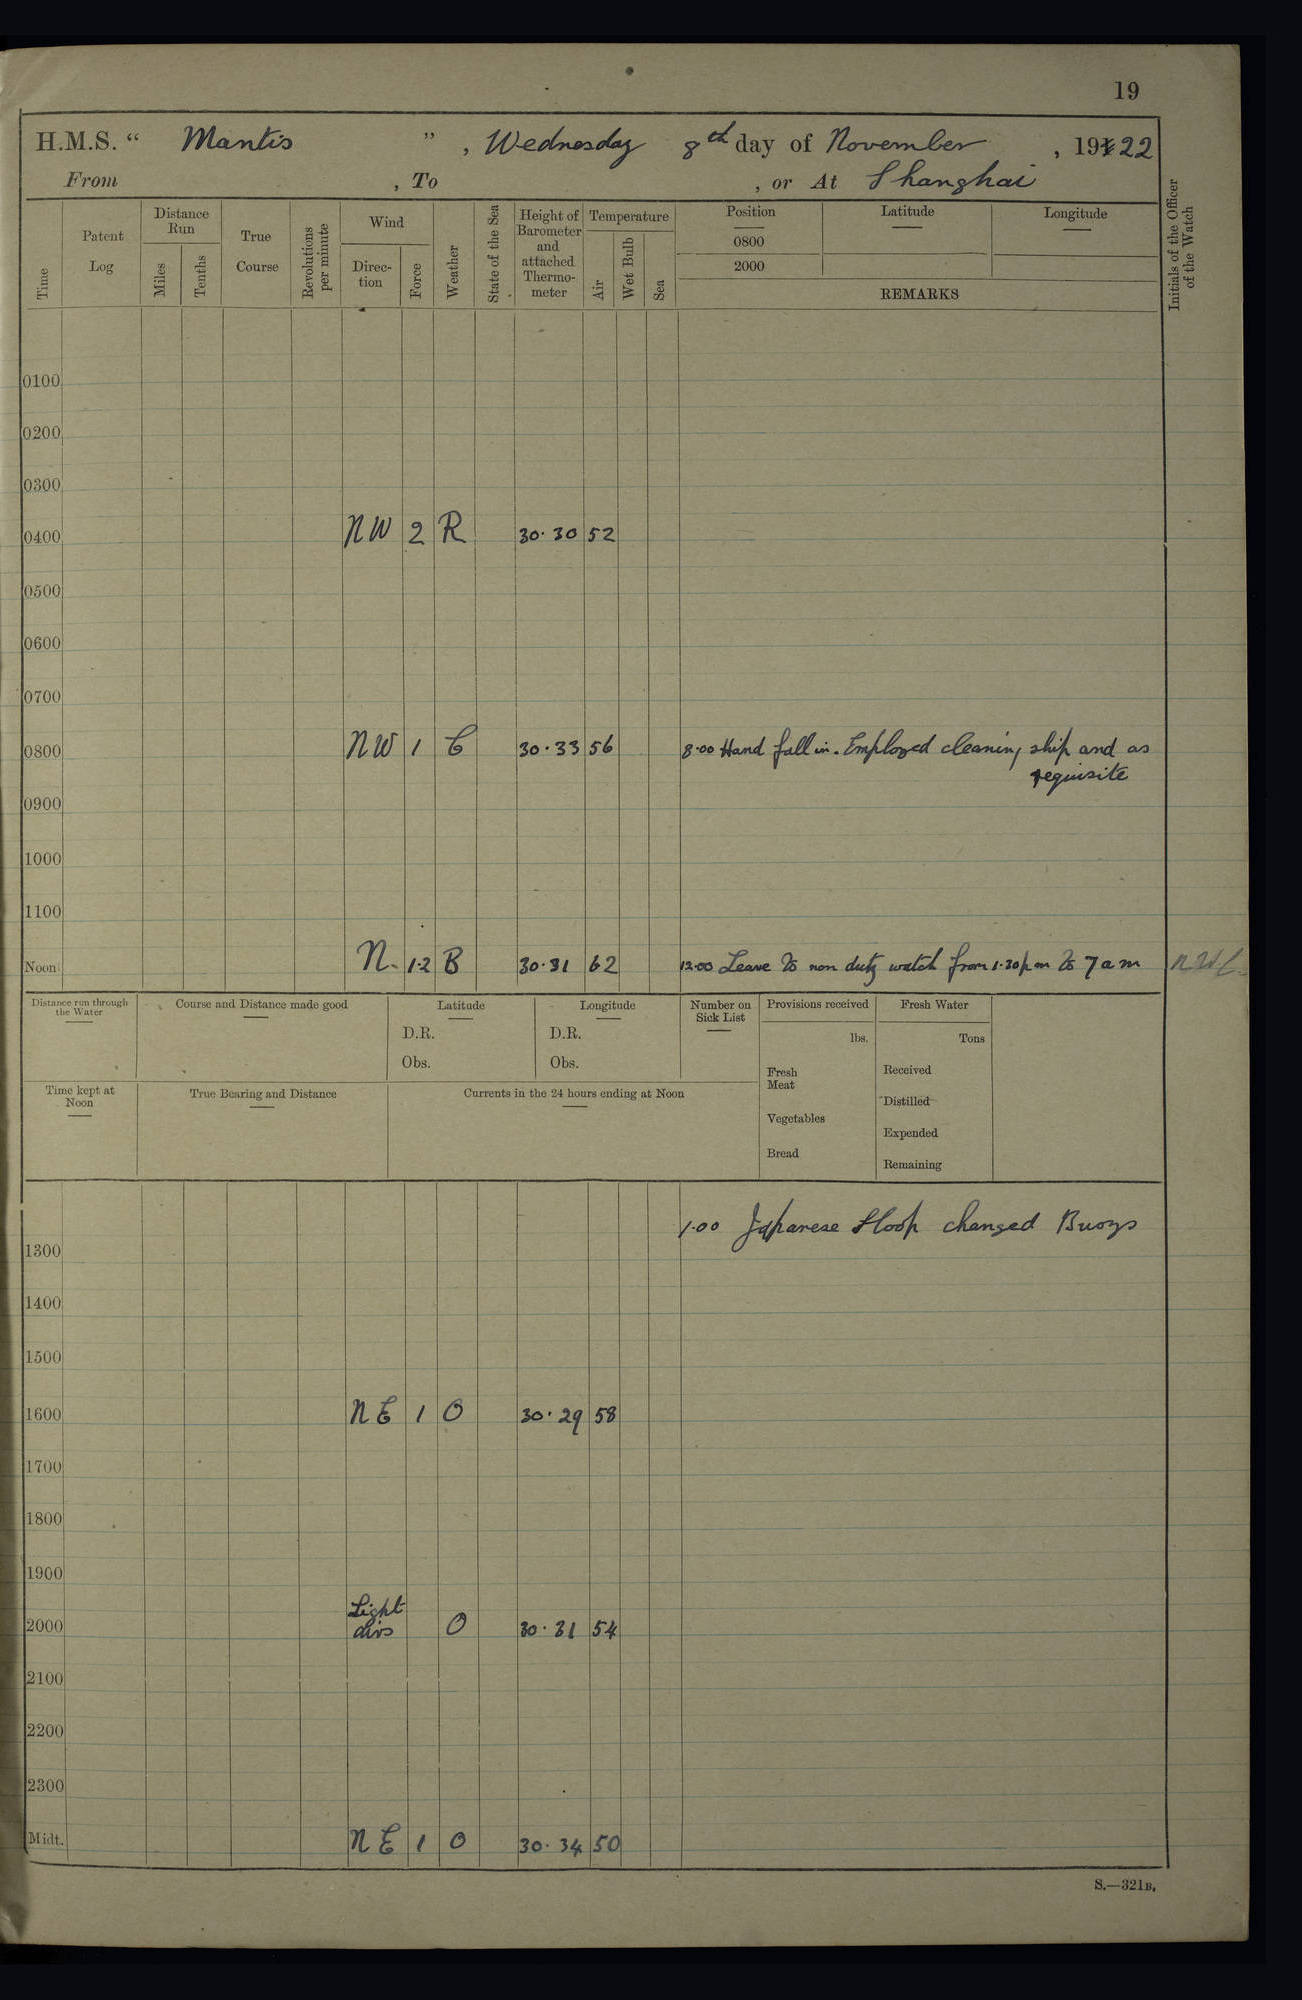 19
H.M.S. “ Mantis ” , Wednesday 8th day of November , 1922
From , To , or At Shanghai
Time
Patent Log
Distance Run
Miles
Tenths
True Course
Revolutions per minute
Wind
Direc-tion
Force
Weather
State of the Sea
Height of Barometer and attached Thermo-meter
Temperature
Air
Wet Bulb
Sea
Position
Latitude
Longitude
0800
2000
REMARKS
Initials of the Officer of the Watch
0100
0200
0300
0400 NW 2 R 30·30 52
0500
0600
0700
0800 NW 1 C 30·33 56 8·00 Hand fall in. Employed cleaning ship and as
requisite
0900
1000
1100
Noon N. 1·2 B 30·31 62 12·00 Leave to non duty watch from 1·30 pm to 7 am
Distance run through the Water
Course and Distance made good
Latitude
D.R.
Obs.
Longitude
D.R.
Obs.
Number on Sick List
Provisions received
lbs.
Fresh Meat
Vegetables
Bread
Fresh Water
Tons
Received
Distilled
Expended
Remaining
Time kept at Noon
True Bearing and Distance
Currents in the 24 hours ending at Noon
1·00 Japanese Sloop changed Buoys
1300
1400
1500
1600 NE 1 O 30·29 58
1700
1800
1900
2000 Light airs O 30·31 54
2100
2200
2300
Midt. NE 1 O 30·34 50
S.—321B.